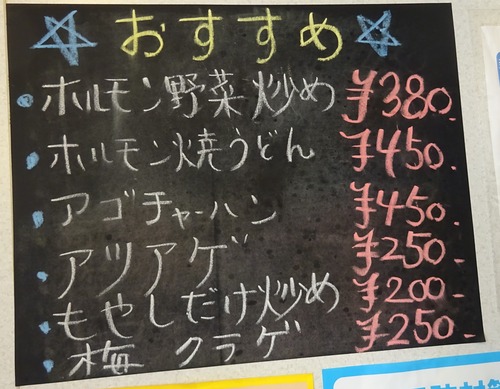 ☆おすすめ☆
・ホルモン野菜炒め ¥380.
・ホルモン焼うどん ¥450.
・アゴチャーハン ¥450.
・アツアゲ ¥250-
・もやしだけ炒め ¥200-
・梅クラゲ ¥250-